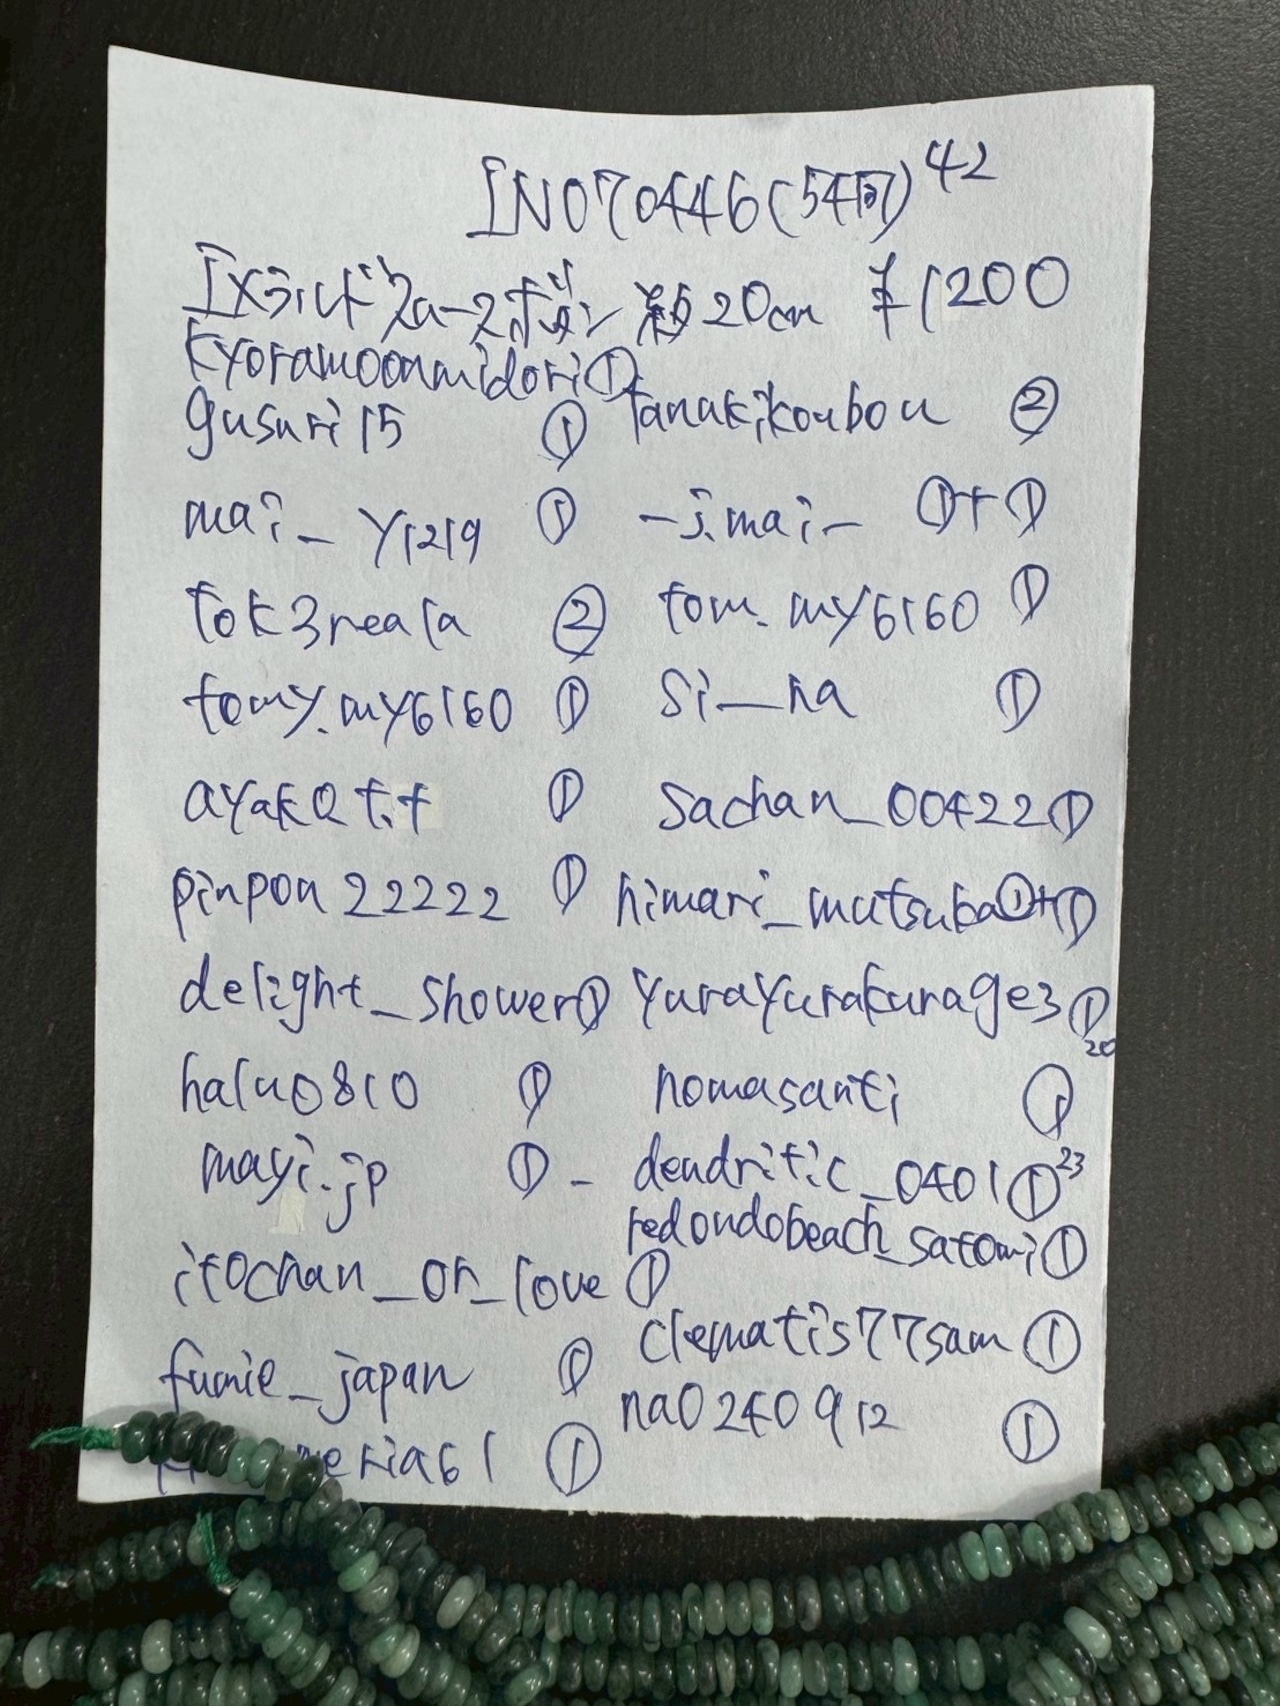 IN070446(54両) 42
エメラルド 20cm ¥1200
kyoramoonmidori ①
gusuri15 ① tanakikoubou ②
mai_y1219 ① -j.mai- ①+①
tok3reala ② tom.my6160 ①
tomy.my6160 ① si__na ①
ayakat.t ① sachan_00422 ①
pinpon22222 ① himari_mutsuba ①+①
delight_shower ① yurayurakurage3 ① 20
halu0810 ① nomasanti ①
mayi.jp ① - dendritic_0401 ① 23
redondobeach_satomi ①
itochan_on_love ①
clematis77sam ①
fumie_japan ①
na0240912 ①
meria61 ①